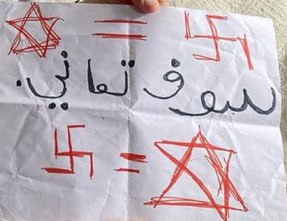 سوف تعاني